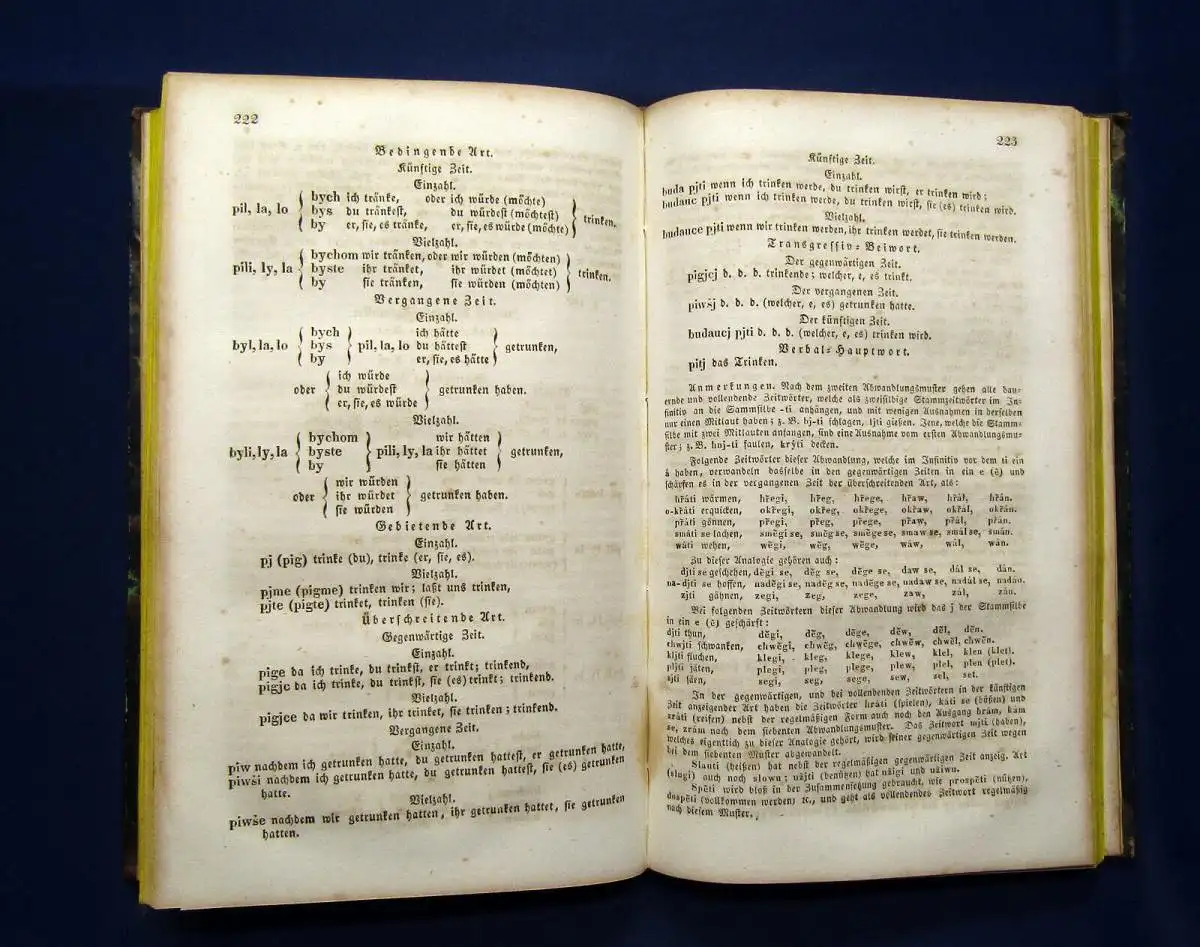 222
Bedingende Art.
Künftige Zeit.
Einzahl.
pil, la, lo { bych ich tränke, oder ich würde (möchte)
bys du tränkest, du würdest (möchtest)
by er, sie, es tränke, er, sie, es würde (möchte) } trinken.
Vielzahl.
pili, ly, la { bychom wir tränken, oder wir würden (möchten)
byste ihr tränket, ihr würdet (möchtet)
by sie tränken, sie würden (möchten) } trinken.
Vergangene Zeit.
Einzahl.
byl, la, lo { bych
bys
by } pil, la, lo { ich hätte
du hättest
er, sie, es hätte } getrunken,
oder { ich würde
du würdest
er, sie, es würde } getrunken haben.
Vielzahl.
byli, ly, la { bychom
byste
by } pili, ly, la { wir hätten
ihr hättet
sie hätten } getrunken,
oder { wir würden
ihr würdet
sie würden } getrunken haben.
Gebietende Art.
Einzahl.
pj (pig) trinke (du), trinke (er, sie, es).
Vielzahl.
pjme (pigme) trinken wir; laßt uns trinken,
pjte (pigte) trinket, trinken (sie).
Überschreitende Art.
Gegenwärtige Zeit.
Einzahl.
pige da ich trinke, du trinkst, er trinkt; trinkend,
pigjc da ich trinke, du trinkst, sie (es) trinkt; trinkend.
Vielzahl.
pigjce da wir trinken, ihr trinket, sie trinken; trinkend.
Vergangene Zeit.
Einzahl.
piw nachdem ich getrunken hatte, du getrunken hattest, er getrunken hatte,
piwši nachdem ich getrunken hatte, du getrunken hattest, sie (es) getrunken
hatte.
Vielzahl.
piwše nachdem wir getrunken hatten, ihr getrunken hattet, sie getrunken
hatten.
223
Künftige Zeit.
Einzahl.
buda pjti wenn ich trinken werde, du trinken wirst, er trinken wird;
budauc pjti wenn ich trinken werde, du trinken wirst, sie (es) trinken wird.
Vielzahl.
budauce pjti wenn wir trinken werden, ihr trinken werdet, sie trinken werden.
Transgressiv-Beiwort.
Der gegenwärtigen Zeit.
pigjcj d. d. d. trinkende; welcher, e, es trinkt.
Der vergangenen Zeit.
piwšj d. d. d. (welcher, e, es) getrunken hatte.
Der künftigen Zeit.
budaucj pjti d. d. d. (welcher, e, es) trinken wird.
Verbal-Hauptwort.
pitj das Trinken.
Anmerkungen. Nach dem zweiten Abwandlungsmuster gehen alle dau-
ernde und vollendende Zeitwörter, welche als zweisilbige Stammzeitwörter im In-
finitiv an die Sammsilbe -ti anhängen, und mit wenigen Ausnahmen in derselben
nur einen Mitlaut haben; z. B. bj-ti schlagen, ljti gießen. Jene, welche die Stamm-
silbe mit zwei Mitlauten anfangen, sind eine Ausnahme vom ersten Abwandlungsmu-
ster; z. B. hnj-ti faulen, krýti decken.
Folgende Zeitwörter dieser Abwandlung, welche im Infinitiv vor dem ti ein
á haben, verwandeln dasselbe in den gegenwärtigen Zeiten in ein e (ě) und
schärfen es in der vergangenen Zeit der überschreitenden Art, als:
hřáti wärmen, hřegi, hřeg, hřege, hřaw, hřál, hřán.
o-křáti erquicken, okřegi, okřeg, okřege, okřaw, okřál, okřán.
přáti gönnen, přegi, přeg, přege, přaw, přál, přán.
smáti se lachen, směgi se, směg se, směge se, smaw se, smál se, smán.
wáti wehen, wěgi, wěg, wěge, wáw, wál, wán.
Zu dieser Analogie gehören auch:
djti se geschehen, děgi se, děg se, děge se, daw se, dál se, dán.
na-djti se hoffen, naděgi se, naděg se, naděge se, nadaw se, nadál se, nadán.
zjti gähnen, zegi, zeg, zege, zaw, zál, zán.
Bei folgenden Zeitwörtern dieser Abwandlung wird das j der Stammsilbe
in ein e (ě) geschärft:
djti thun, děgi, děg, děge, děw, děl, děn.
chwjti schwanken, chwěgi, chwěg, chwěge, chwěw, chwěl, chwěn.
kljti fluchen, klegi, kleg, klege, klew, klel, klen (klet).
pljti jäten, plegi, pleg, plege, plew, plel, plen (plet).
sjti säen, segi, seg, sege, sew, sel, set.
In der gegenwärtigen, und bei vollendenden Zeitwörtern in der künftigen
Zeit anzeigender Art haben die Zeitwörter hráti (spielen), káti se (büßen) und
zráti (reifen) nebst der regelmäßigen Form auch noch den Ausgang hrám, kám
se, zrám nach dem siebenten Abwandlungsmuster. Das Zeitwort mjti (haben),
welches eigentlich zu dieser Analogie gehört, wird seiner gegenwärtigen Zeit wegen
bei dem siebenten Muster abgewandelt.
Slauti (heißen) hat nebst der regelmäßigen gegenwärtigen Zeit anzeig. Art
(slugi) auch noch slowu; užjti (benützen) hat užigi und užiwu.
Spěti wird bloß in der Zusammensetzung gebraucht, wie prospěti (nützen),
dospěti (vollkommen werden) ꝛc., und geht als vollendendes Zeitwort regelmäßig
nach diesem Muster.